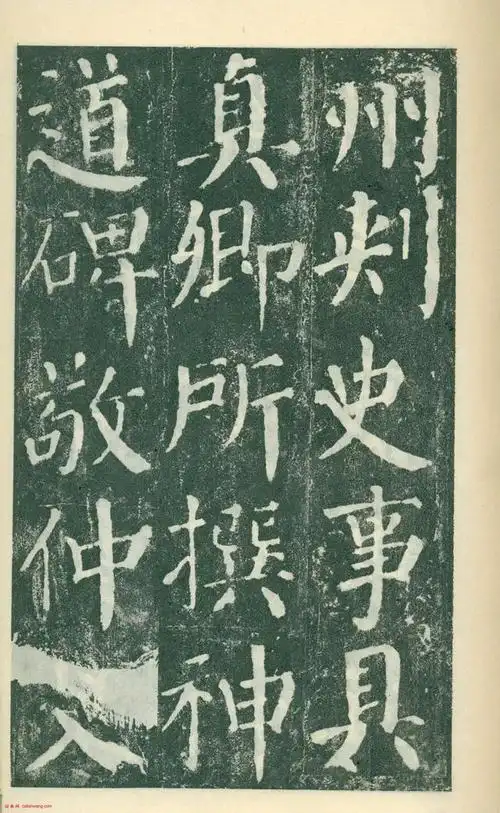 州刾史事具
真卿所撰神
道碑敬仲入